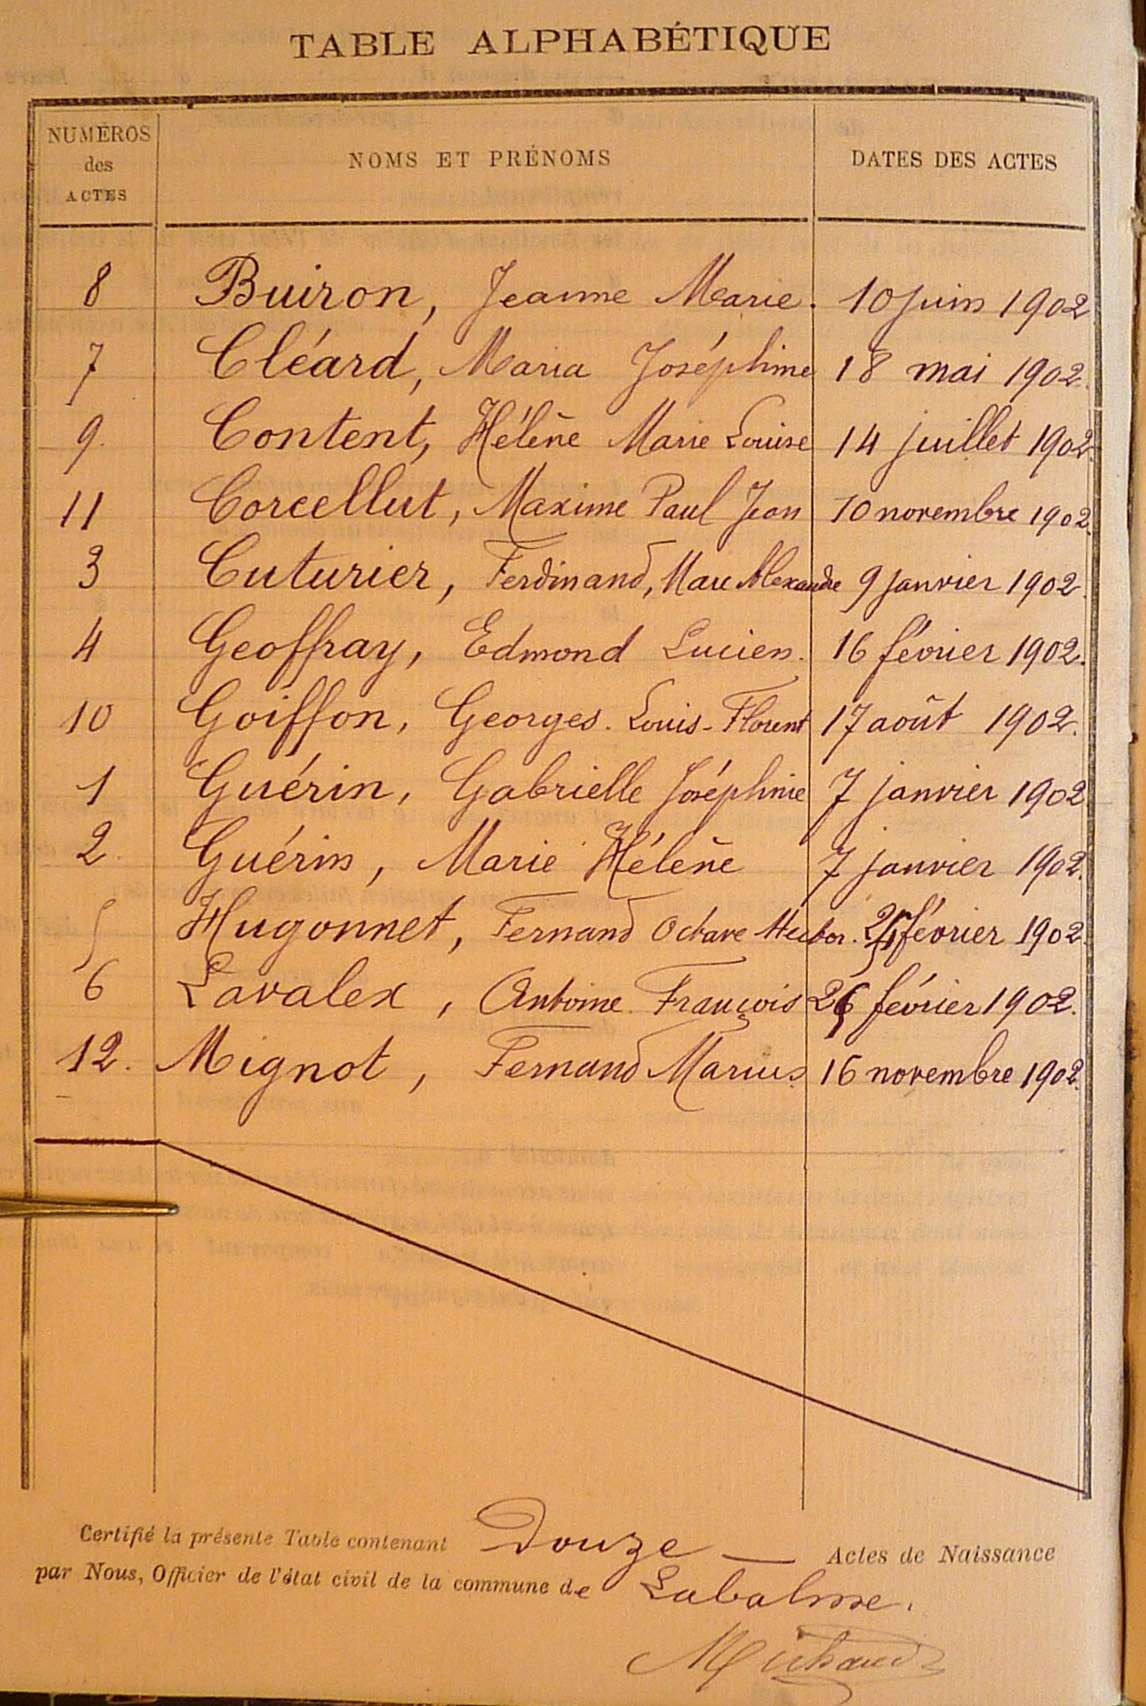 TABLE ALPHABÉTIQUE
NUMÉROS des ACTES NOMS ET PRÉNOMS DATES DES ACTES
8 Buiron, Jeanne Marie. 10 juin 1902
7 Cléard, Maria Joséphine 18 mai 1902.
9. Content, Hélène Marie Louise 14 juillet 1902.
11 Corcellut, Maxime Paul Jean 10 novembre 1902.
3 Cuturier, Ferdinand, Marc Alexandre 9 janvier 1902.
4 Geoffray, Edmond Lucien. 16 février 1902.
10 Goiffon, Georges. Louis-Florent 17 août 1902.
1 Guérin, Gabrielle Joséphine 7 janvier 1902
2. Guérin, Marie Hélène 7 janvier 1902.
5 Hugonnet, Fernand Octave Hector. février 1902
6 Lavalex, Antoine François février 1902.
12. Mignot, Fernand Marius 16 novembre 1902.
Certifié la présente Table contenant Douze — Actes de Naissance
par Nous, Officier de l'état civil de la commune de Labalme.
Michaud